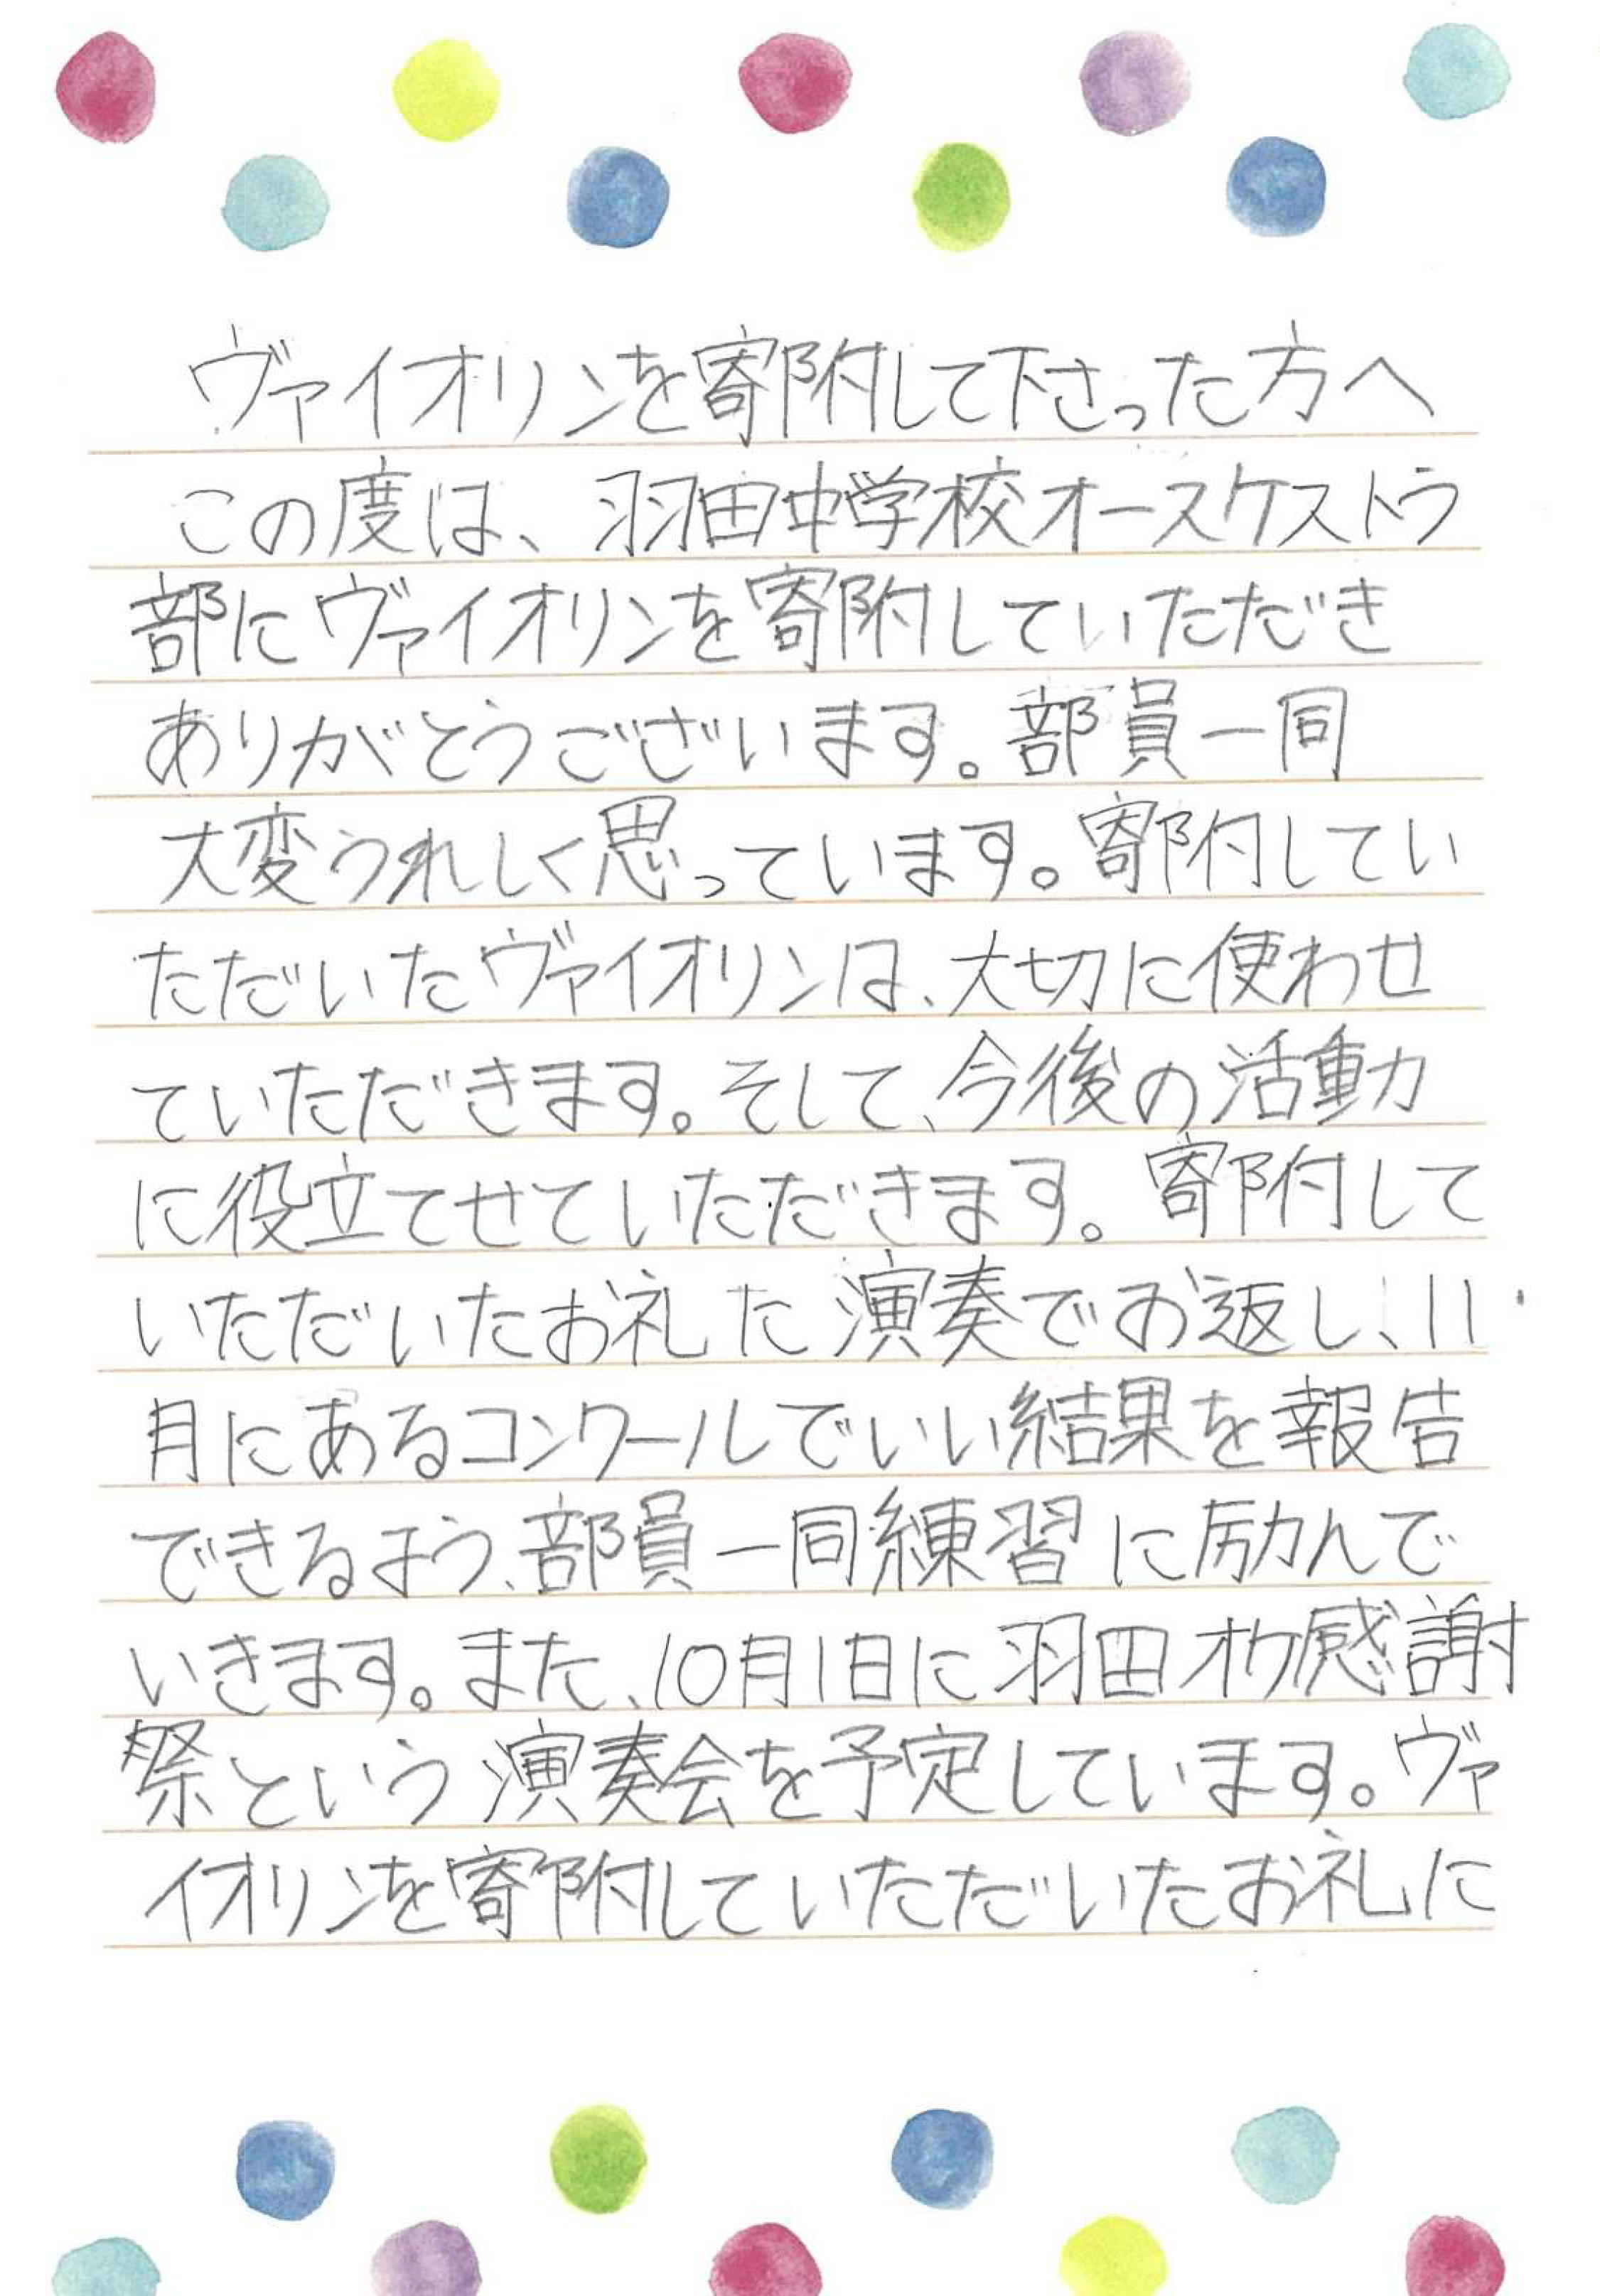 ヴァイオリンを寄附して下さった方へ
この度は、羽田中学校オースケストラ
部にヴァイオリンを寄附していただき
ありがとうございます。部員一同
大変うれしく思っています。寄附してい
ただいたヴァイオリンは、大切に使わせ
ていただきます。そして、今後の活動
に役立てせていただきます。寄附して
いただいたお礼た演奏でお返し、11
月にあるコンクールでいい結果を報告
できるよう、部員一同練習に励んで
いきます。また、10月1日に羽田オケ感謝
祭という演奏会を予定しています。ヴァ
イオリンを寄附していただいたお礼に